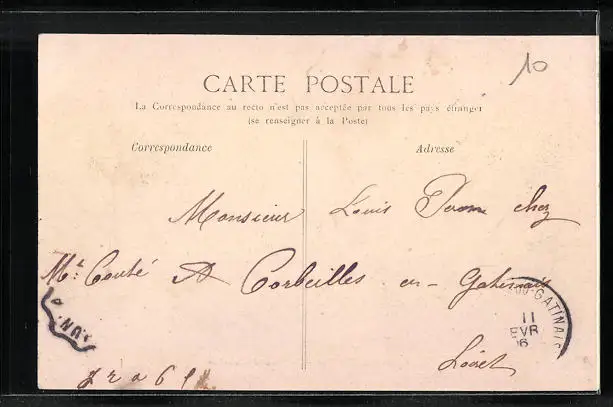 10
CARTE POSTALE
La Correspondance au recto n'est pas acceptée par tous les pays étranger
(se renseigner à la Poste)
Correspondance
Adresse
Monsieur Louis chez
Mr Couté A Corbeilles en - Gatinais
-GATINAIS
11
EVR
06
Loiret